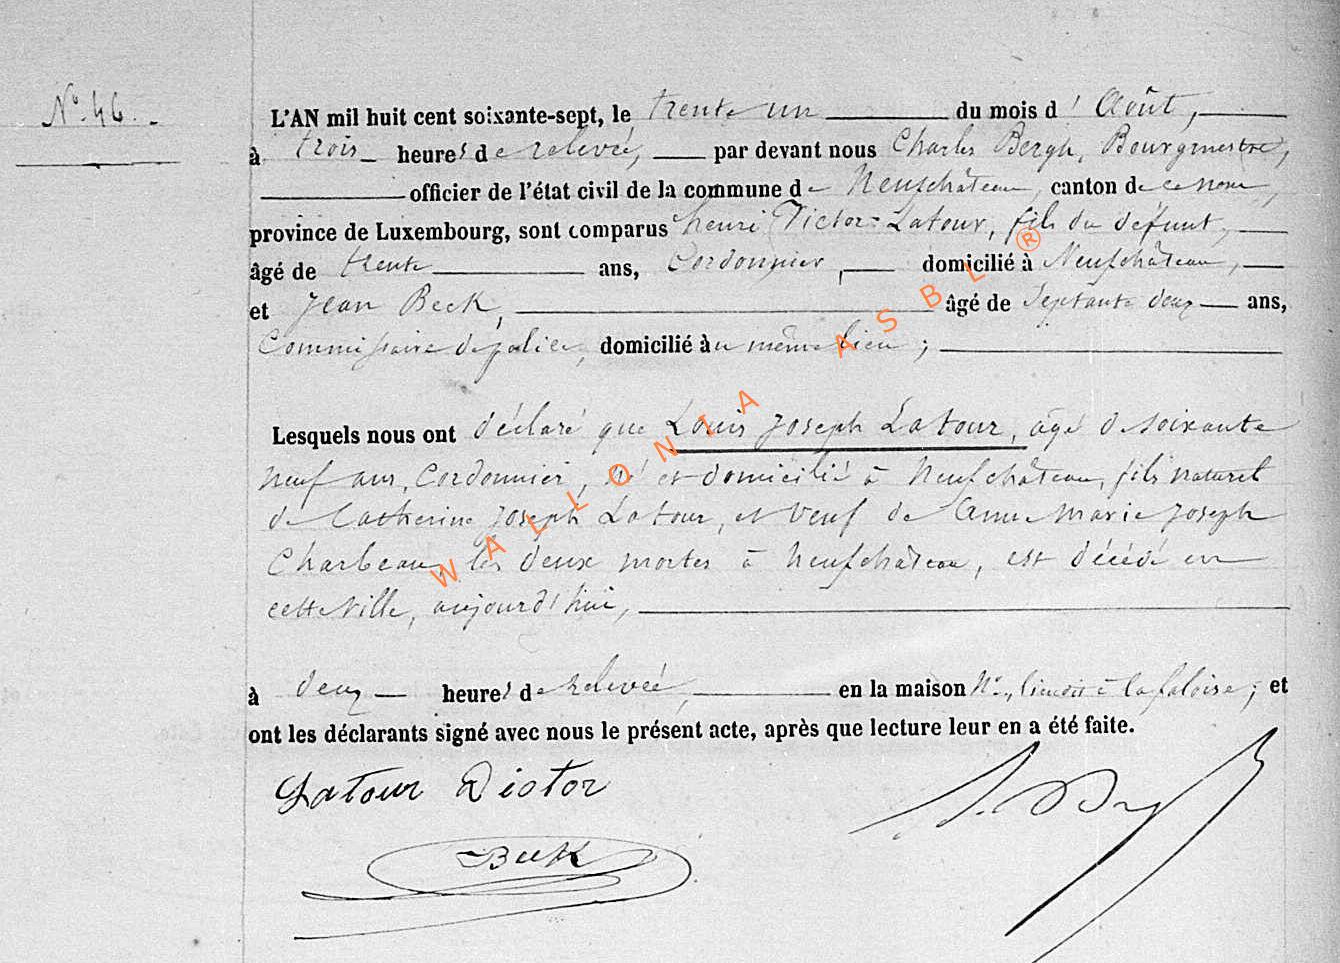 N° 46.
L'AN mil huit cent soixante-sept, le trente un du mois d'Août,
à trois heures de relevée, par devant nous Charles Bergh, Bourgmestre,
officier de l'état civil de la commune de Neufchâteau, canton de ce nom,
province de Luxembourg, sont comparus henri Victor Latour, fils du défunt,
âgé de trente ans, Cordonnier, domicilié à Neufchâteau,
et Jean Beck, âgé de Septante deux ans,
Commissaire de police, domicilié au même lieu;
Lesquels nous ont déclaré que Louis Joseph Latour, âgé de soixante
neuf ans, Cordonnier, né et domicilié à Neufchâteau, fils naturel
de Catherine Joseph Latour, et Veuf de Anne Marie Joseph
Charbeau, les deux mortes à Neufchâteau, est décédé en
cette Ville, aujourd'hui,
à deux heures de relevée, en la maison N° , lieudit à la faloise; et
ont les déclarants signé avec nous le présent acte, après que lecture leur en a été faite.
Latour Victor
Beck
WALLONIA ASBL ®